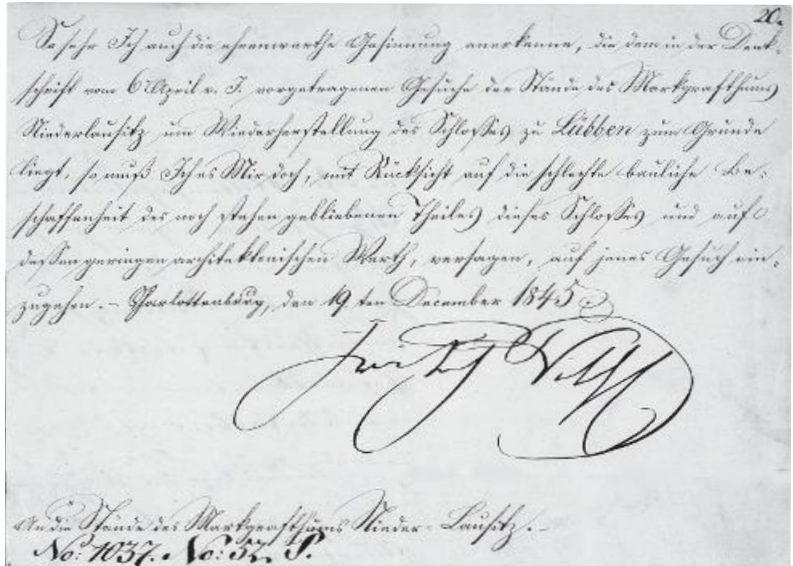 20.
So sehr Ich auch die ehrenwerthe Gesinnung anerkenne, die dem in der Denk-
schrift vom 6 April v. J. vorgetragenen Gesuche der Stände des Markgrafthums
Niederlausitz um Wiederherstellung des Schlosses zu Lübben zum Grunde
liegt, so muß Ich es Mir doch, mit Rücksicht auf die schlechte bauliche Be-
schaffenheit des noch stehen gebliebenen Theiles dieses Schlosses und auf
dessen geringen architektonischen Werth, versagen, auf jenes Gesuch ein-
zugehen. – Charlottenburg, den 19. ten December 1845
An die Stände des Markgrafthums Nieder-Lausitz. –
No: 1037. No: 52 P.